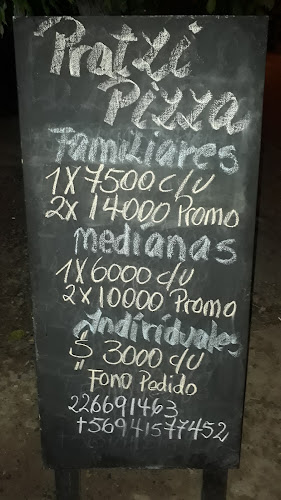 Pratzi
Pizza
Familiares
1x7500 c/u
2x14000 Promo
medianas
1x6000 c/u
2x10000 Promo
Individuales
$ 3000 c/u
" Fono Pedido
226691463
+56941577452